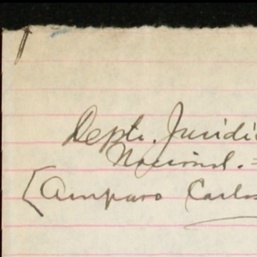 Depto. Juridi
Nacional.=
(Amparo Carlos